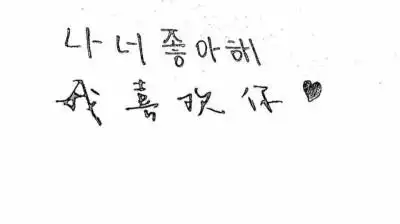 나 너 좋아해
我喜欢你 ♥